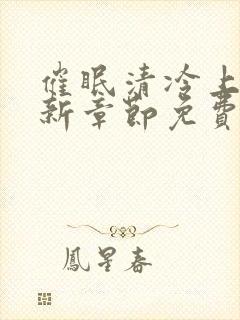 催眠清冷上
新章节免费
鳳星春